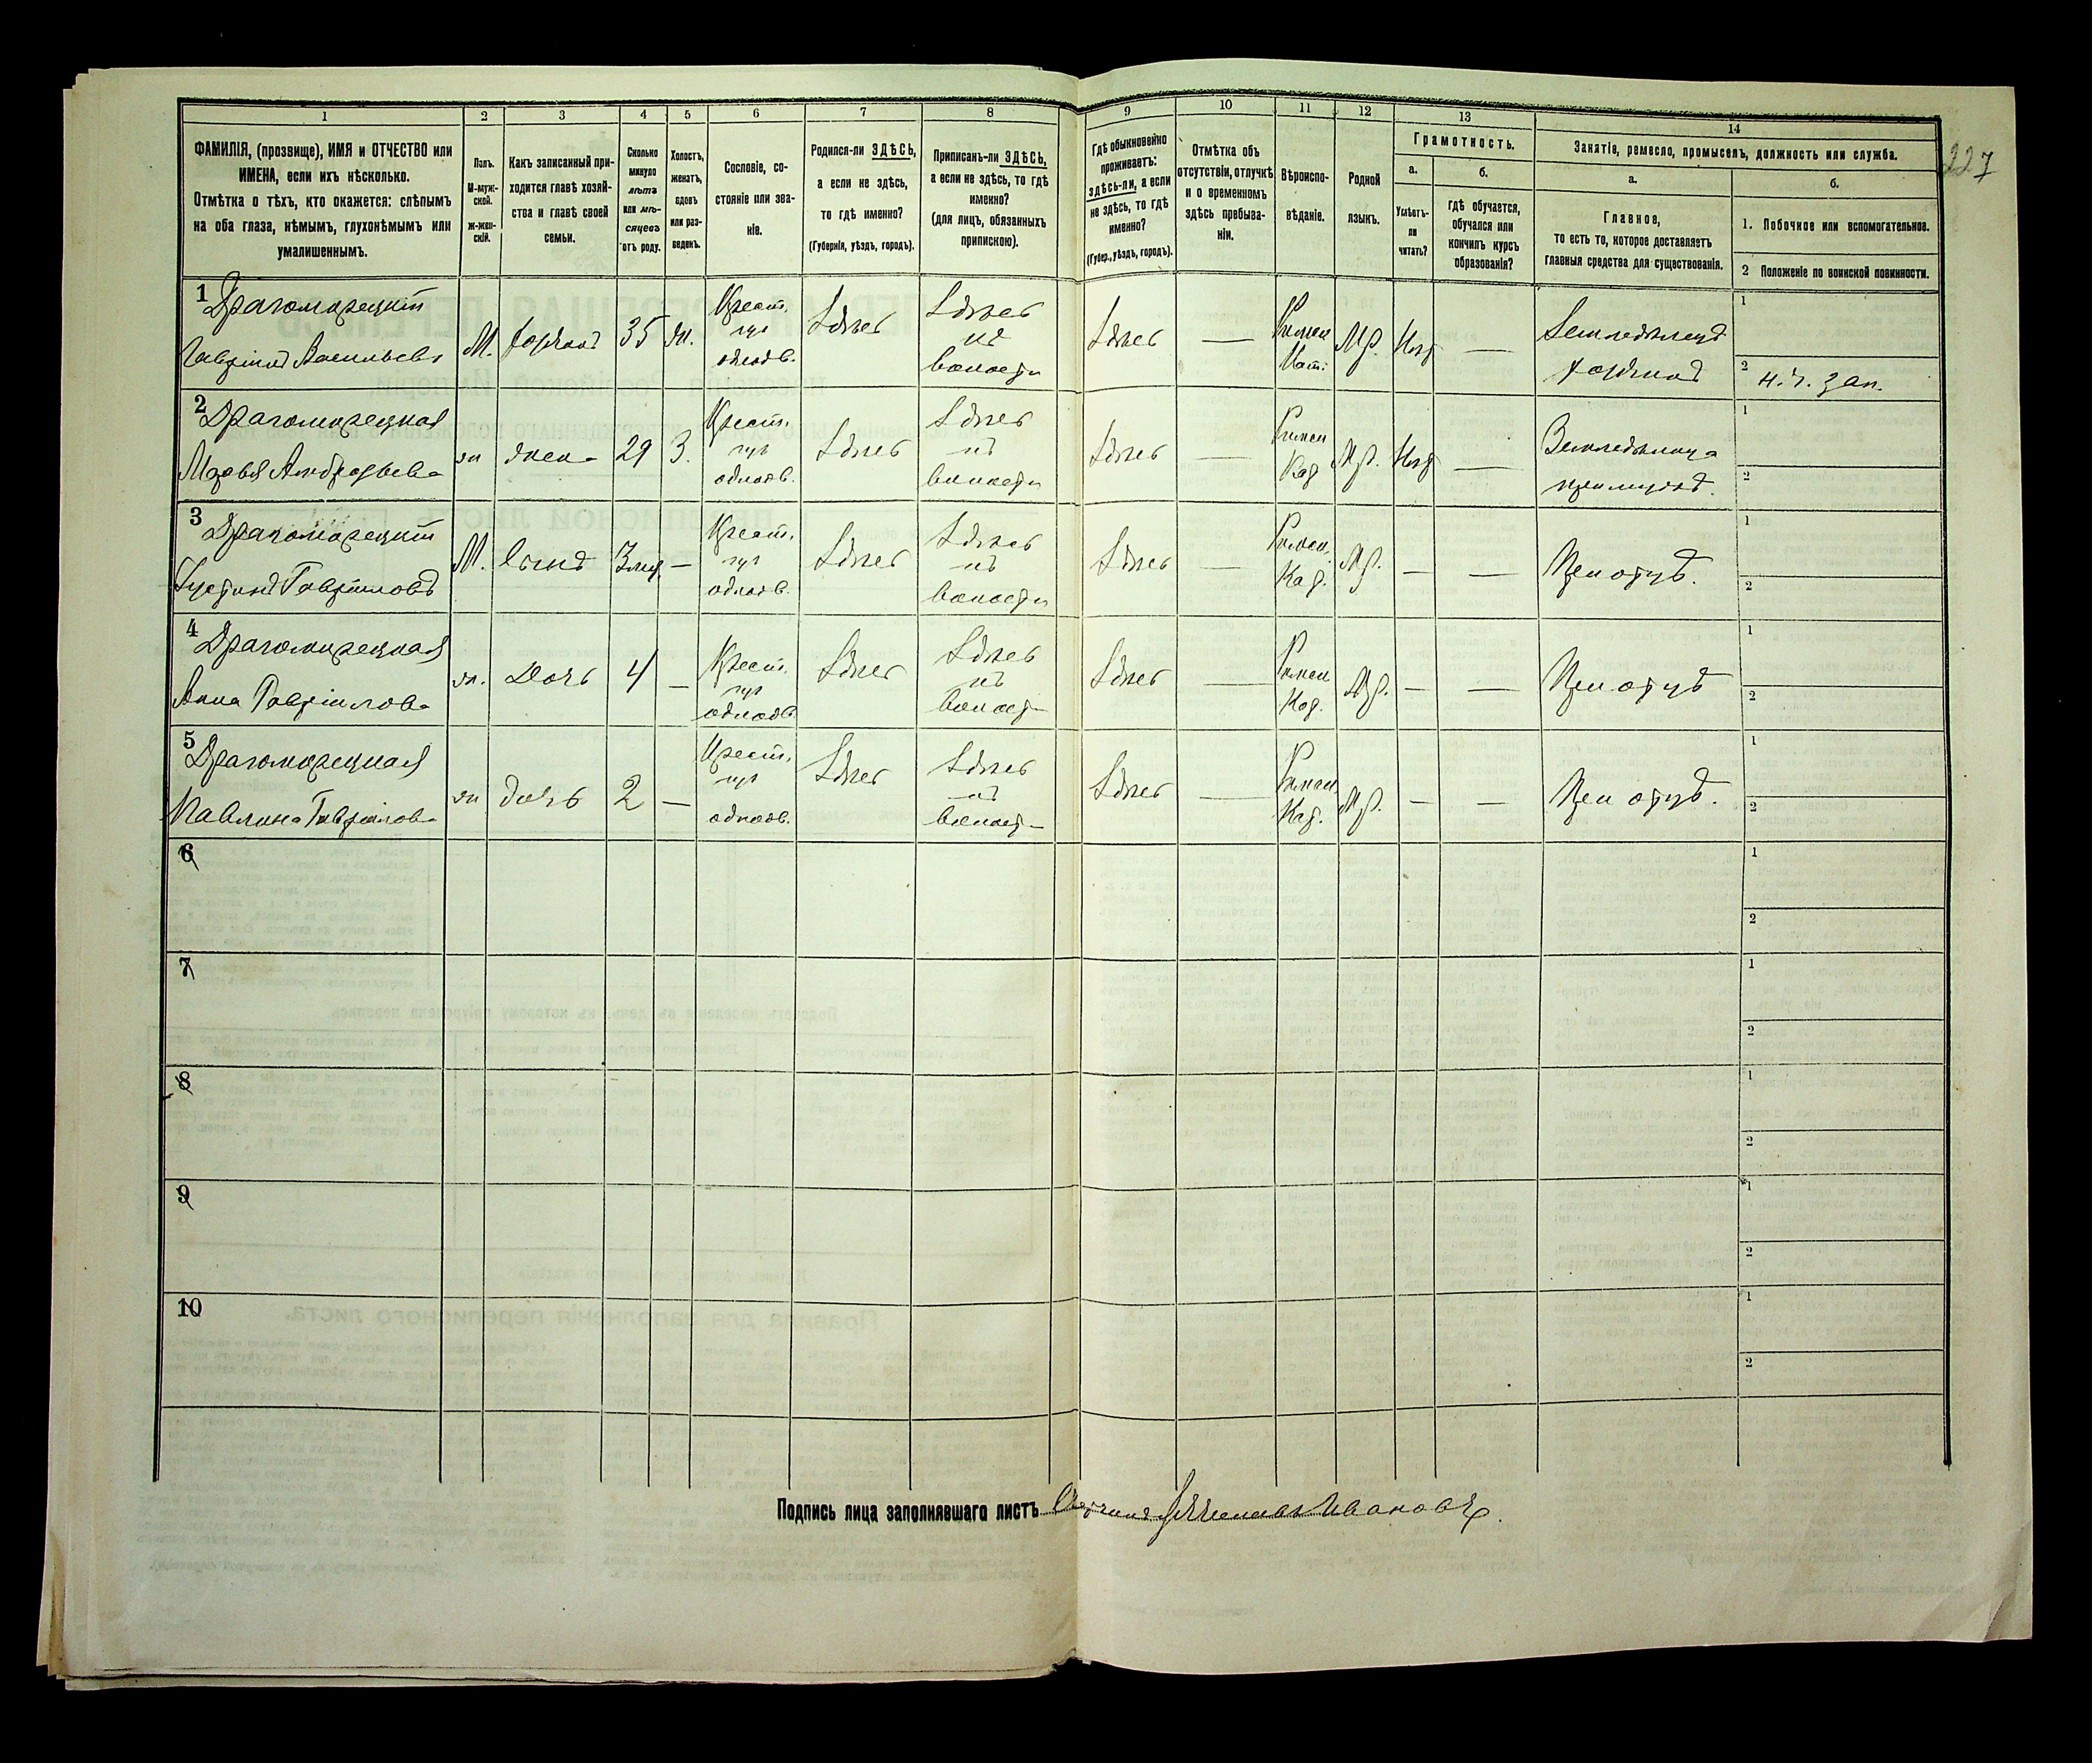 227
1 2 3 4 5 6 7 8 9 10 11 12 13 14
ФАМИЛІЯ, (прозвище), ИМЯ и ОТЧЕСТВО или
ИМЕНА, если ихъ нѣсколько.
Отмѣтка о тѣхъ, кто окажется: слѣпымъ
на оба глаза, нѣмымъ, глухонѣмымъ или
умалишеннымъ.
Полъ.
М-муж-
ской.
ж-жен-
скій.
Какъ записанный при-
ходится главѣ хозяй-
ства и главѣ своей
семьи.
Сколько
минуло
лѣтъ
или мѣ-
сяцевъ
отъ роду.
Холостъ,
женатъ,
вдовъ
или раз-
веденъ.
Сословіе, со-
стояніе или зва-
ніе.
Родился-ли ЗДѢСЬ,
а если не здѣсь,
то гдѣ именно?
(Губернія, уѣздъ, городъ).
Приписанъ-ли ЗДѢСЬ,
а если не здѣсь, то гдѣ
именно?
(для лицъ, обязанныхъ
припискою).
Гдѣ обыкновенно
проживаетъ:
здѣсь-ли, а если
не здѣсь, то гдѣ
именно?
(Губер., уѣздъ, городъ).
Отмѣтка объ
отсутствіи, отлучкѣ
и о временномъ
здѣсь пребыва-
ніи.
Вѣроиспо-
вѣданіе.
Родной
языкъ.
Грамотность.
а.
Умѣетъ-
ли
читать?
б.
гдѣ обучается,
обучался или
кончилъ курсъ
образованія?
Занятіе, ремесло, промыселъ, должность или служба.
а.
Главное,
то есть то, которое доставляетъ
главныя средства для существованія.
б.
1. Побочное или вспомогательное.
2 Положеніе по воинской повинности.
1
Драгомирецкій
Гавріилъ Васильевъ
М.
хозяинъ
35
ж.
Крест.
однодв.
Здѣсь
Здѣсь
въ
волости
Здѣсь
—
Римск
Кат.
Мр.
Нѣт
—
Земледѣлецъ
хозяинъ
1
2
2
Драгомирецкая
Марья
ж
жена
29
З.
Крест.
однодв.
Здѣсь
Здѣсь
въ
волости
Здѣсь
—
Римск
Кат
Мр.
Нѣт
—
Земледѣлица
при мужѣ.
1
2
3
Драгомирецкій
Гавріиловъ
М.
Сынъ
—
Крест.
однодв.
Здѣсь
Здѣсь
въ
волости
Здѣсь
—
Римск.
Кат.
Мр.
—
—
При отцѣ.
1
2
4
Драгомирецкая
Анна Гавріилова
ж.
Дочь
4
—
Крест.
однодв.
Здѣсь
Здѣсь
въ
волости
Здѣсь
—
Римск
Кат.
Мр.
—
—
При отцѣ
1
2
5
Драгомирецкая
Павлина Гавріилова
ж
дочь
2
—
Крест.
однодв.
Здѣсь
Здѣсь
въ
волости
Здѣсь
—
Римск
Кат.
Мр.
—
—
При отцѣ.
1
2
6
1
2
7
1
2
8
1
2
9
1
2
10
1
2
Подпись лица заполнявшаго листъ